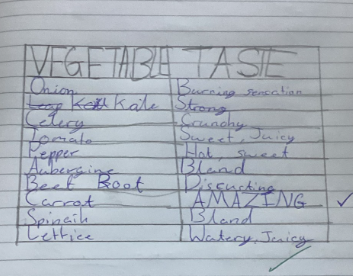 VEGETABLE TASTE
Onion Burning sensation
Kale Strong
Celery Crunchy
Tomato Sweet, Juicy
Pepper Hot, sweet
Aubergine Bland
Beet Root Disgusting
Carrot AMAZING
Spinaih Bland
Lettice Watery, Juicy